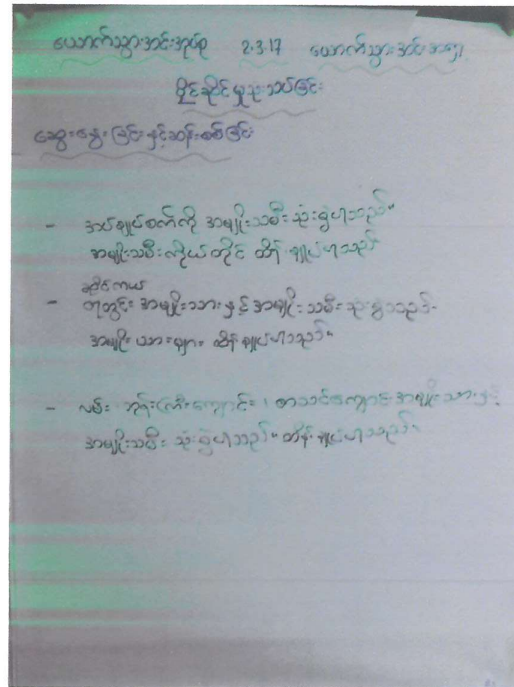 ယောက်သွားအင်းအုပ်စု 2.3.17 ယောက်သွားအင်းရွာ
ပိုင်ဆိုင်မှုသုံးသပ်ခြင်း
ဆွေးနွေးခြင်းနှင့်ဆန်းစစ်ခြင်း
- အပ်ချုပ်စက်ကို အမျိုးသမီးသုံးစွဲပါသည်။
အမျိုးသမီးကိုယ်တိုင် ထိန်းချုပ်ပါသည်
ဆိုင်ကယ်
- ရေတွင်း အမျိုးသားနှင့်အမျိုးသမီးသုံးစွဲသည်။
အမျိုးသားများ ထိန်းချုပ်ပါသည်။
- လမ်း ဘုန်းကြီးကျောင်း၊ စာသင်ကျောင်း အမျိုးသားနှင့်
အမျိုးသမီး သုံးစွဲပါသည်။ ထိန်းချုပ်ပါသည်။